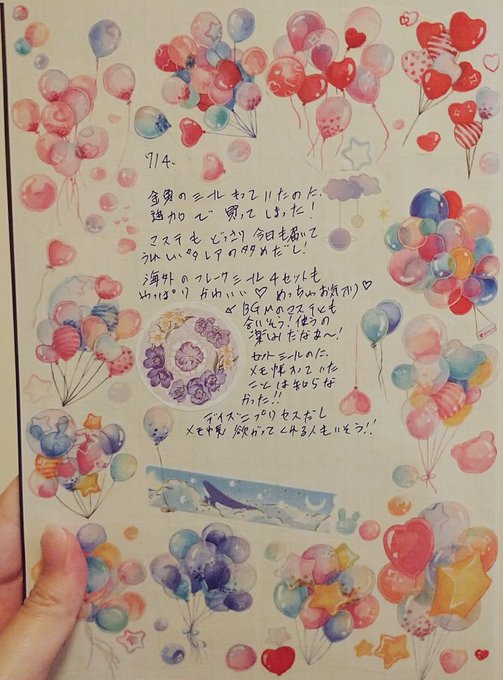 7/4.
全員のシール もっていたのに
追加で 買ってしまった!
マステも どっさり 今日も届いて
うれしい
海外のフレークシール4セットも
やっぱり かわいい♡ めっちゃお気入り♡
BGMのマステとも
合いそう!使うの
楽しみだなぁ〜!
セットシールのに、
メモ帳入っていた
ことは知らな
かった!!
ディズニープリンセスだし
メモ帳 欲しがってくれる人もいそう!!